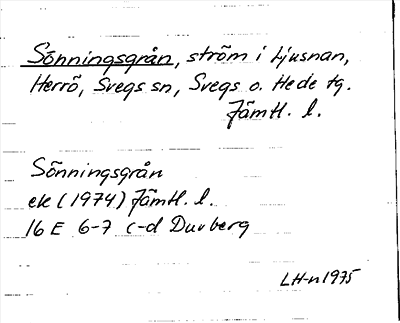 Sönningsgrån, ström i Ljusnan,
Herrö, Svegs sn, Svegs o. Hede tg.
Jämtl. l.
Sönningsgrån
ek (1974) Jämtl. l.
16 E 6-7 c-d Duvberg
LH-n 1975